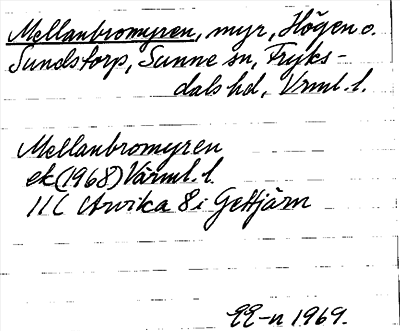 Mellanbromyren, myr, Högen o.
Sundstorp, Sunne sn, Fryks-
dals hd, Vrml. l.
Mellanbromyren
ek (1968) Värml. l.
11C Arvika 8i Gettjärn
1969.